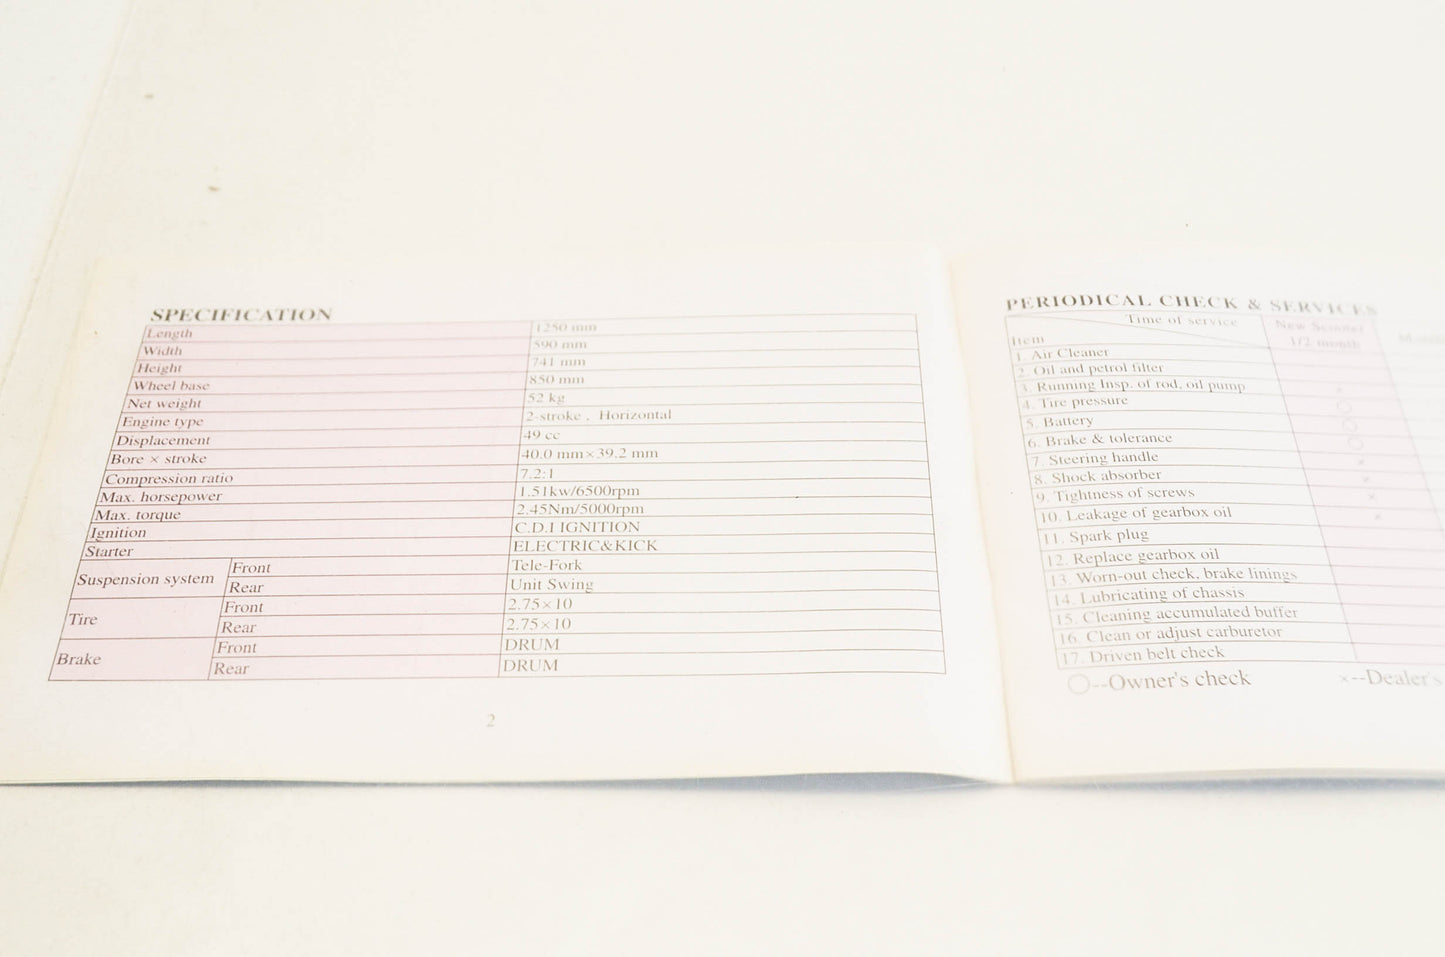 SPECIFICATION
Length 1250 mm
Width 590 mm
Height 741 mm
Wheel base 850 mm
Net weight 52 kg
Engine type 2-stroke . Horizontal
Displacement 49 cc
Bore × stroke 40.0 mm×39.2 mm
Compression ratio 7.2:1
Max. horsepower 1.51kw/6500rpm
Max. torque 2.45Nm/5000rpm
Ignition C.D.I IGNITION
Starter ELECTRIC&KICK
Suspension system Front Tele-Fork
Rear Unit Swing
Tire Front 2.75×10
Rear 2.75×10
Brake Front DRUM
Rear DRUM
2
PERIODICAL CHECK & SERVICES
Time of service New Scooter
Item 1/2 month
1. Air Cleaner
2. Oil and petrol filter
3. Running Insp. of rod, oil pump ×
4. Tire pressure ○
5. Battery ○
6. Brake & tolerance ○
7. Steering handle ×
8. Shock absorber ×
9. Tightness of screws ×
10. Leakage of gearbox oil ×
11. Spark plug
12. Replace gearbox oil
13. Worn-out check, brake linings
14. Lubricating of chassis
15. Cleaning accumulated buffer
16. Clean or adjust carburetor
17. Driven belt check
○--Owner's check ×--Dealer's